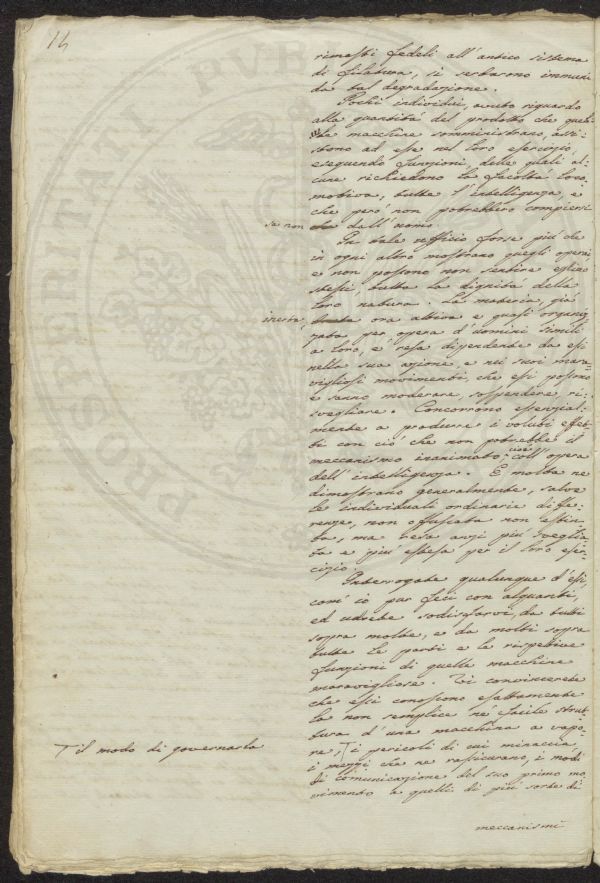 14
rimasti fedeli all' antico sistema
di filatura, si serbarono immuni
da tal degradazione.
Pochi individui, avuto riguardo
alla quantità del prodotto che que-
ste macchine somministrano, assi-
stono ad esse nel loro esercizio,
eseguendo funzioni, delle quali al-
cune richiedono la facoltà loco-
motiva, tutte l' intelligenza, e
che però non potrebbero compiersi
se non dall' uomo.
In tale ufficio forse più che
in ogni altro mostrano quegli operai
e non possono non sentire eglino
stessi, tutta la dignità della
loro natura. La materia, già
inerte, ora attiva e quasi organiz-
zata per opera d' uomini simili
a loro, è resa dipendente da essi
nella sua azione, e nei suoi mara-
vigliosi movimenti, che essi possono
e sanno moderare, sospendere, ri-
svegliare. Concorrono essenzial-
mente a produrre i voluti effet-
ti con ciò che non potrebbe il
meccanismo inanimato: coll' opera
dell' intelligenza. E molta ne
dimostrano generalmente, salve
le individuali ordinarie diffe-
renze, non offuscata non estin-
ta, ma resa anzi più sveglia-
ta e più estesa per il loro eser-
cizio.
Interrogate qualunque d' essi,
com' io pur feci con alquanti,
ed udrete sodisfarvi, da tutti
sopra molte, e da molti sopra
tutte le parti e le rispettive
funzioni di quelle macchine
maravigliose. Vi convincerete
che essi conoscono esattamente
la non semplice né facile strut-
tura d' una macchina a vapo-
re, T i pericoli di cui minaccia,
T il modo di governarla
i mezzi che ne rassicurano, i modi
di comunicazione del suo primo mo-
vimento a quelli di più sorte di
meccanismi
PROSPERITATI PUB